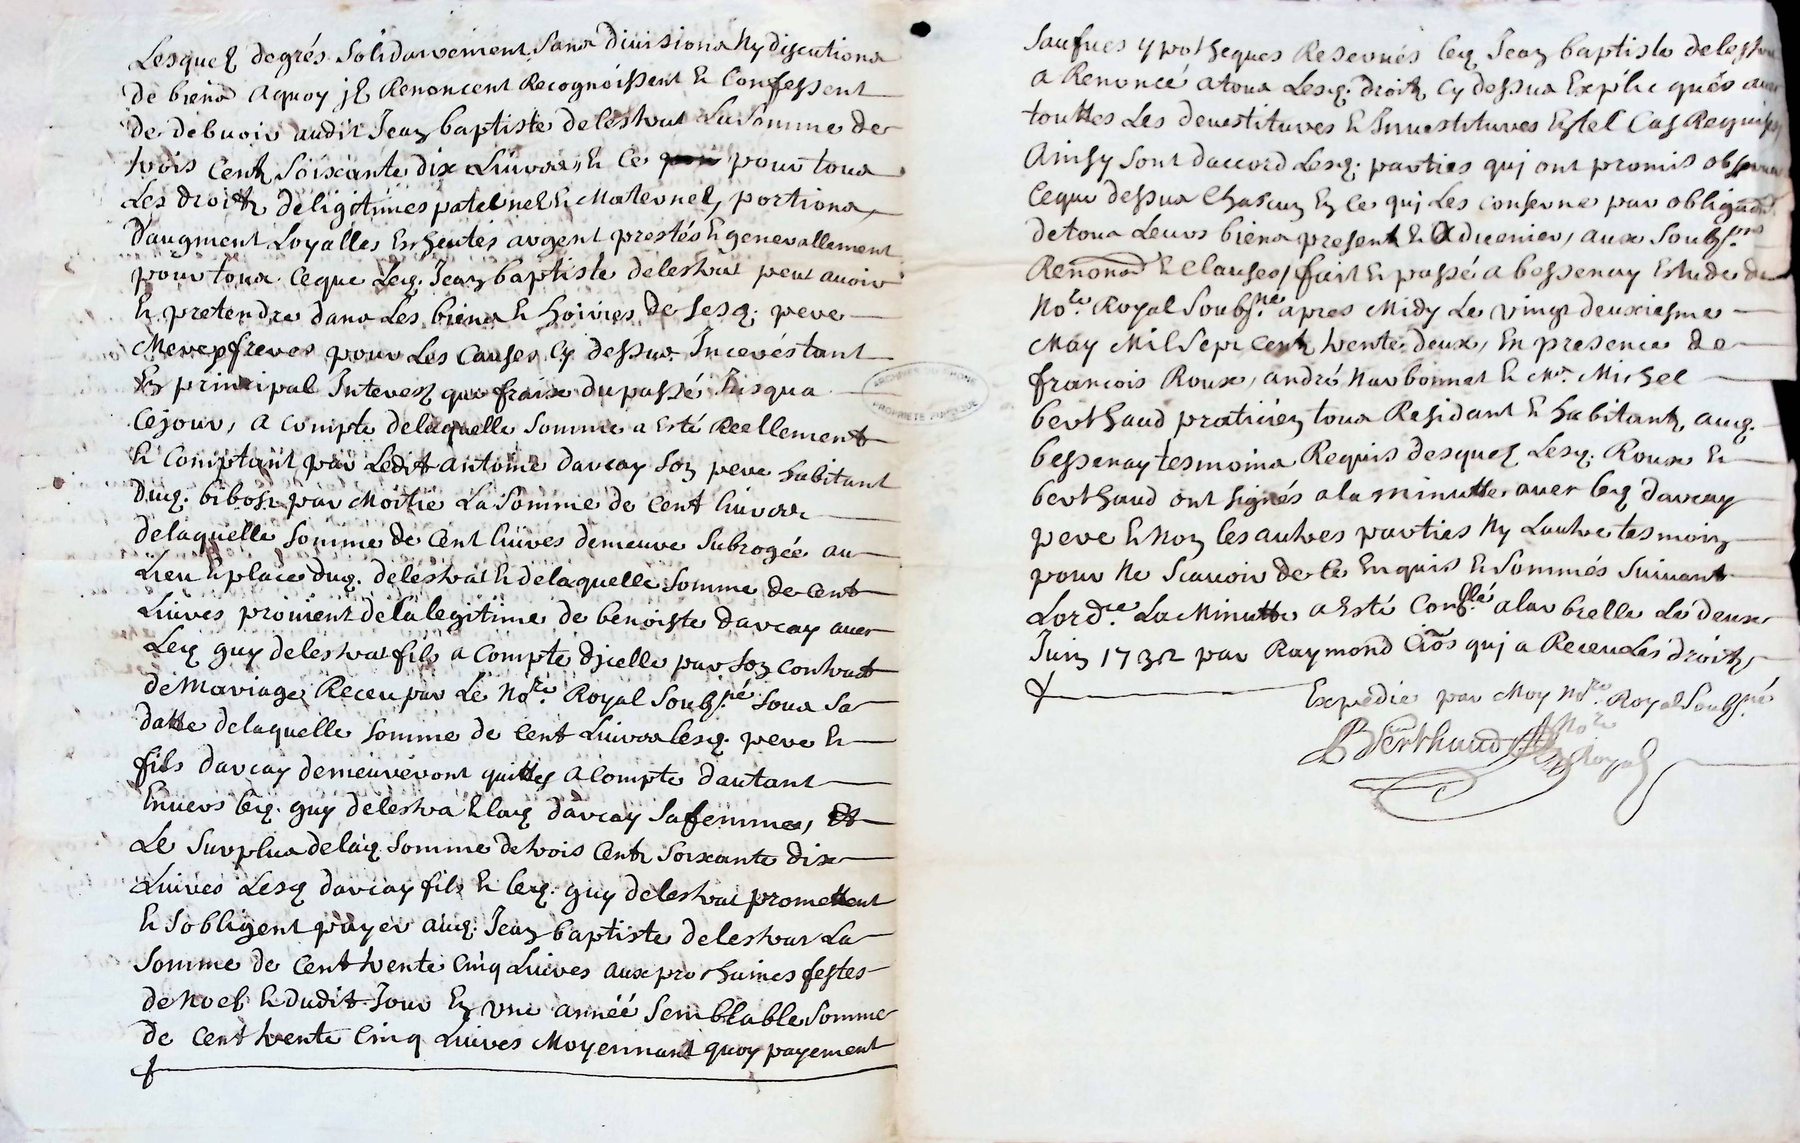 Lesquelz degrés Solidairement Sans divisions Ny discutions
de biens aquoy ilz Renoncent Recognoissent et Confessent
de debvoir audit Jean baptiste delestrat La Somme de
trois Centz Soixante dix Livres, et Ce pour tous
Les droitz deligitimes patelnel et Maternel, portions
daugment Loyalles Escheutes argent prestés et generallement
pour tous Ceque Leq. Jean baptiste delestrat peut avoir
et pretendre dans Les biens et hoiries de Sesq. pere
Mere freres pour Les Causes Cy dessus Increstant
En principal Interestz que fraix dupassé Jusqua
Cejour, a Compte delaquelle Somme a Esté Reellement
et Comptant par Ledit antoine darcay Son pere habitant
duq. bibost par Moitie La Somme de Cent livres
delaquelle Somme de Cent livres demeure Subrogée au
Lieu et place duq. delestrat et delaquelle Somme de Cent
Livres provient de la legitime de benoiste darcay avec
Leq guy delestrat fils a Compte djcelle par Son Contrat
de Mariage Receu par Le Nore. Royal Soubsné. Sous Sa
datte delaquelle Somme de Cent Livres lesq. pere et
fils darcay demeureront quittes a Compte dautant
Envers leq. guy delestra et laq darcay Safemme, Et
Le Surplus delaq Somme de trois Centz Soixante dix
Livres Lesq darcay fils et leq. guy delestrat promettent
et Sobligent payer auq. Jean baptiste delestrat La
Somme de Cent trente Cinq Livres aux prochaines festes
de Noel et dudit Jour En une année Semblable Somme
de Cent trente Cinq Livres Moyennant quoy payement
Saufues ypotheques Reservés leq Jean baptiste delestrat
a Renoncé a tous Lesq. droitz Cy dessus Expliequés avec
touttes Les devestitures et Investitures En tel Cas Requises
Ainsy Sont daccord Lesq. parties qui ont promis observer
Ceque dessus Chascun En Ce qui Les Conserne par obligaon
detous Leurs biens presentz et Advenier, aux Soubsons
Renonaons et Clauses, fait et passé a bessenay Estude du
Nore. Royal Soubsné. apres Midy Le vingt deuxiesme
May Mil Sept Centz trente deux, En presence de
francois Roux, andré Narbonnat et Mre. Michel
berthaud praticien tous Residant et habitantz auq.
bessenay tesmoins Requis desquelz Lesq. Roux et
berthaud ont Signés a la minutte avec leq darcay
pere et Non les autres parties Ny Lautre tesmoin
pour Ne Scavoir de Ce Enquis et Sommés Suivant
Lordce. La Minutte a Esté Conllé a lar brelle Le deux
Juin 1732 par Raymond qui a Receu Les droitz
Expedie par Moy Nore. Royal Soubsné
BBerthaud Nore
Royal
ARCHIVES DU RHONE
PROPRIETE PUBLIQUE